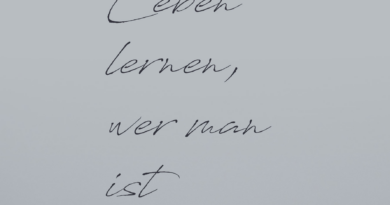 Leben
lernen,
wer man
ist